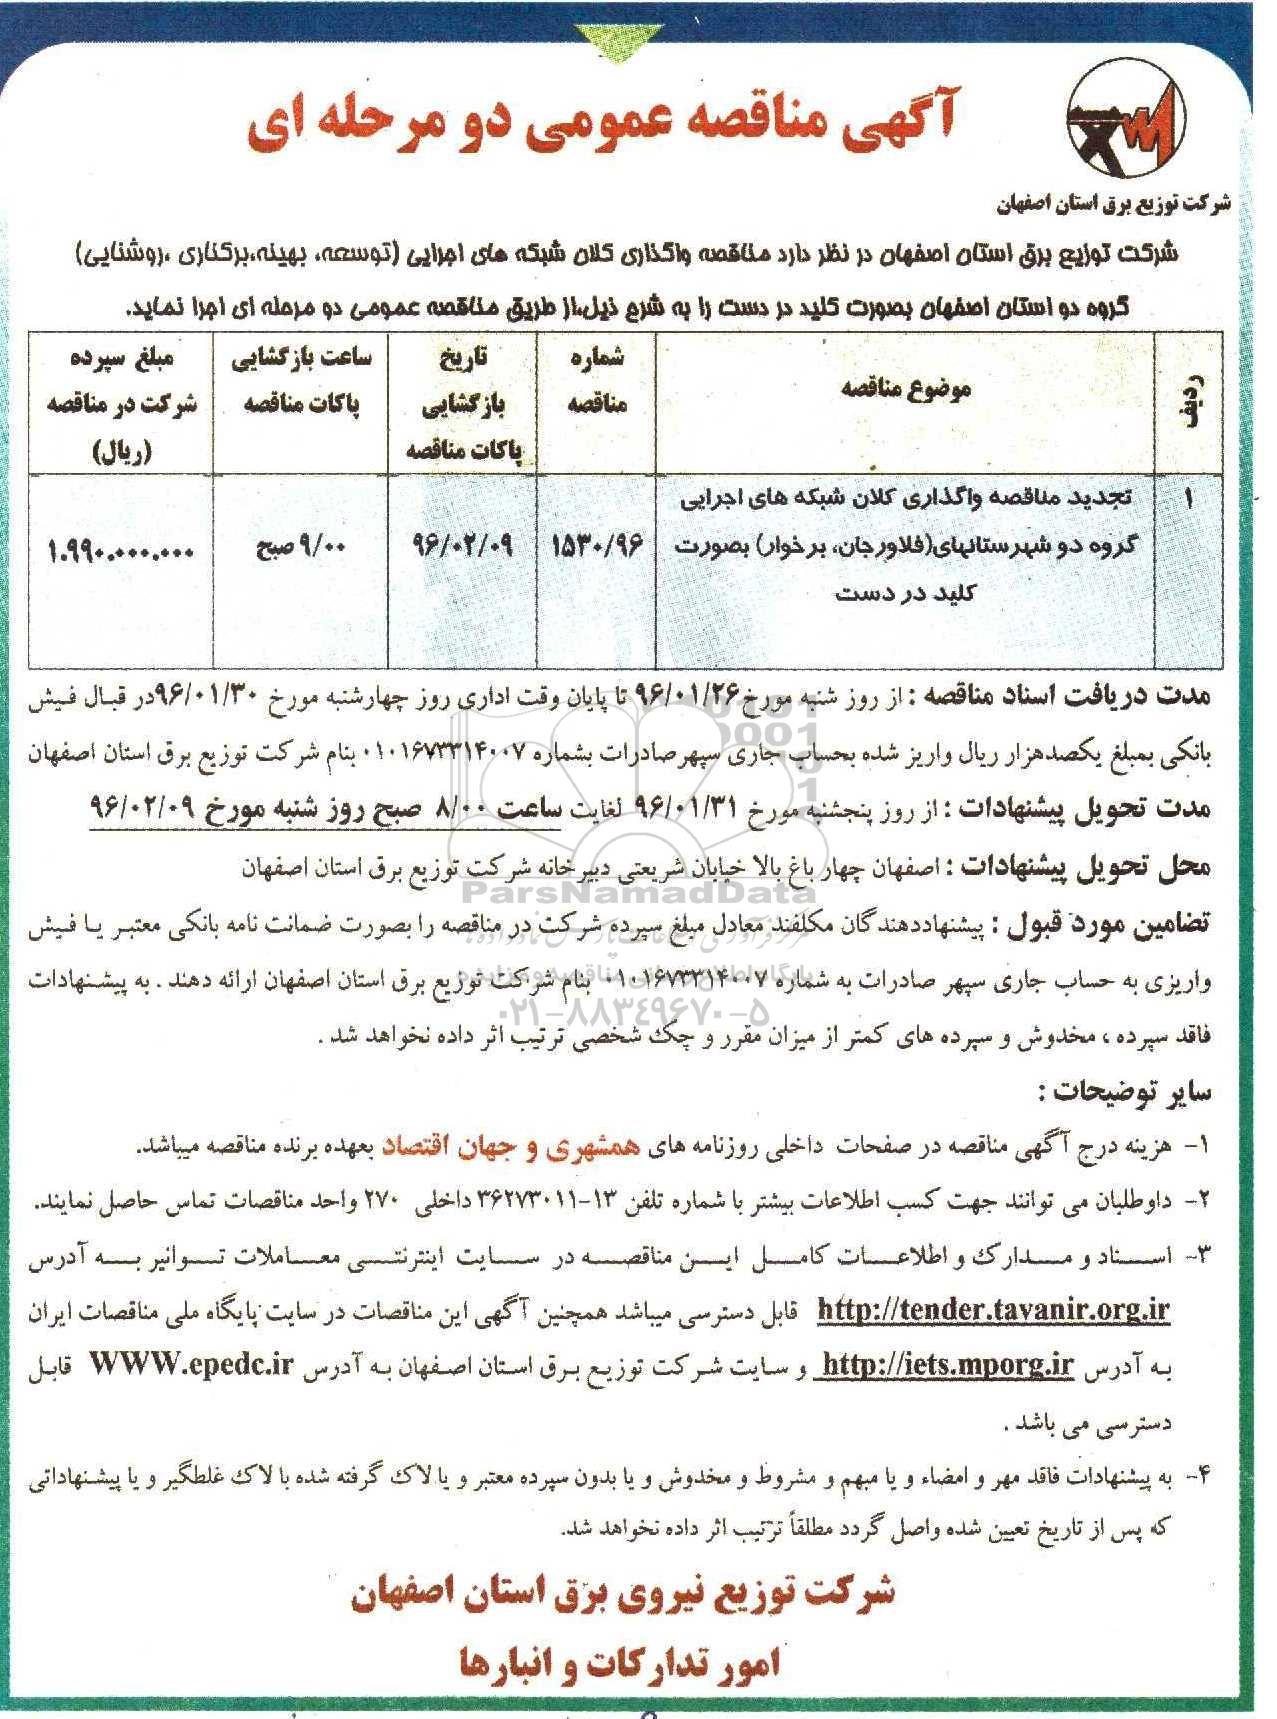 آگهی مناقصه عمومی دو مرحله ای
شرکت توزیع برق استان اصفهان
شرکت توزیع برق استان اصفهان در نظر دارد مناقصه واگذاری کلان شبکه های اجرایی (توسعه، بهینه،برکناری ،روشنایی)
گروه دو استان اصفهان بصورت کلید در دست را به شرح ذیل،از طریق مناقصه عمومی دو مرحله ای اجرا نماید.
ردیف | موضوع مناقصه | شماره مناقصه | تاریخ بازگشایی پاکات مناقصه | ساعت بازگشایی پاکات مناقصه | مبلغ سپرده شرکت در مناقصه (ریال)
۱ | تجدید مناقصه واگذاری کلان شبکه های اجرایی گروه دو شهرستانهای(فلاورجان، برخوار) بصورت کلید در دست | ۱۵۳۰/۹۶ | ۹۶/۰۲/۰۹ | ۹/۰۰ صبح | ۱.۹۹۰.۰۰۰.۰۰۰
مدت دریافت اسناد مناقصه : از روز شنبه مورخ۹۶/۰۱/۲۶ تا پایان وقت اداری روز چهارشنبه مورخ ۹۶/۰۱/۳۰در قبال فیش
بانکی بمبلغ یکصدهزار ریال واریز شده بحساب جاری سپهرصادرات بشماره ۰۱۰۱۶۷۳۳۱۴۰۰۷ بنام شرکت توزیع برق استان اصفهان
مدت تحویل پیشنهادات : از روز پنجشنبه مورخ ۹۶/۰۱/۳۱ لغایت ساعت ۸/۰۰ صبح روز شنبه مورخ ۹۶/۰۲/۰۹
محل تحویل پیشنهادات : اصفهان چهار باغ بالا خیابان شریعتی دبیرخانه شرکت توزیع برق استان اصفهان
ParsNamadData
تضامین مورد قبول : پیشنهاددهندگان مکلفند معادل مبلغ سپرده شرکت در مناقصه را بصورت ضمانت نامه بانکی معتبر یا فیش
واریزی به حساب جاری سپهر صادرات به شماره ۰۱۰۱۶۷۳۳۱۴۰۰۷ بنام شرکت توزیع برق استان اصفهان ارائه دهند . به پیشنهادات
۰۲۱-۸۸۳۴۹۶۷۰-۵
فاقد سپرده ، مخدوش و سپرده های کمتر از میزان مقرر و چک شخصی ترتیب اثر داده نخواهد شد .
سایر توضیحات :
۱- هزینه درج آگهی مناقصه در صفحات داخلی روزنامه های همشهری و جهان اقتصاد بعهده برنده مناقصه میباشد.
۲- داوطلبان می توانند جهت کسب اطلاعات بیشتر با شماره تلفن ۱۳-۳۶۲۷۳۰۱۱ داخلی ۲۷۰ واحد مناقصات تماس حاصل نمایند.
۳- اسناد و مدارک و اطلاعات کامل این مناقصه در سایت اینترنتی معاملات توانیر به آدرس
http://tender.tavanir.org.ir قابل دسترسی میباشد همچنین آگهی این مناقصات در سایت پایگاه ملی مناقصات ایران
به آدرس http://iets.mporg.ir و سایت شرکت توزیع برق استان اصفهان به آدرس WWW.epedc.ir قابل
دسترسی می باشد .
۴- به پیشنهادات فاقد مهر و امضاء و یا مبهم و مشروط و مخدوش و یا بدون سپرده معتبر و یا لاک گرفته شده با لاک غلطگیر و یا پیشنهاداتی
که پس از تاریخ تعیین شده واصل گردد مطلقاً ترتیب اثر داده نخواهد شد.
شرکت توزیع نیروی برق استان اصفهان
امور تدارکات و انبارها